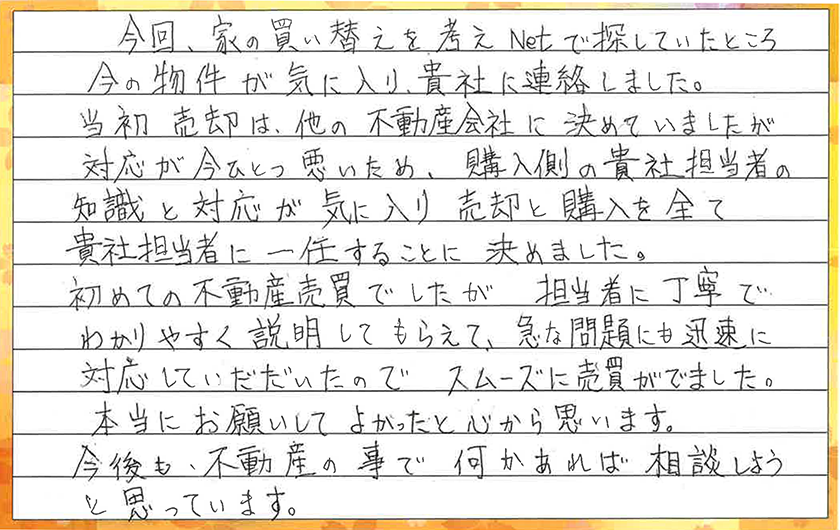 今回、家の買い替えを考えNetで探していたところ
今の物件が気に入り、貴社に連絡しました。
当初 売却は、他の不動産会社に決めていましたが
対応が今ひとつ悪いため、購入側の貴社担当者の
知識と対応が気に入り売却と購入を全て
貴社担当者に一任することに決めました。
初めての不動産売買でしたが 担当者に丁寧で
わかりやすく説明してもらえて、急な問題にも迅速に
対応していだだいたので スムーズに売買がでました。
本当にお願いしてよかったと心から思います。
今後も、不動産の事で何かあれば相談しよう
と思っています。